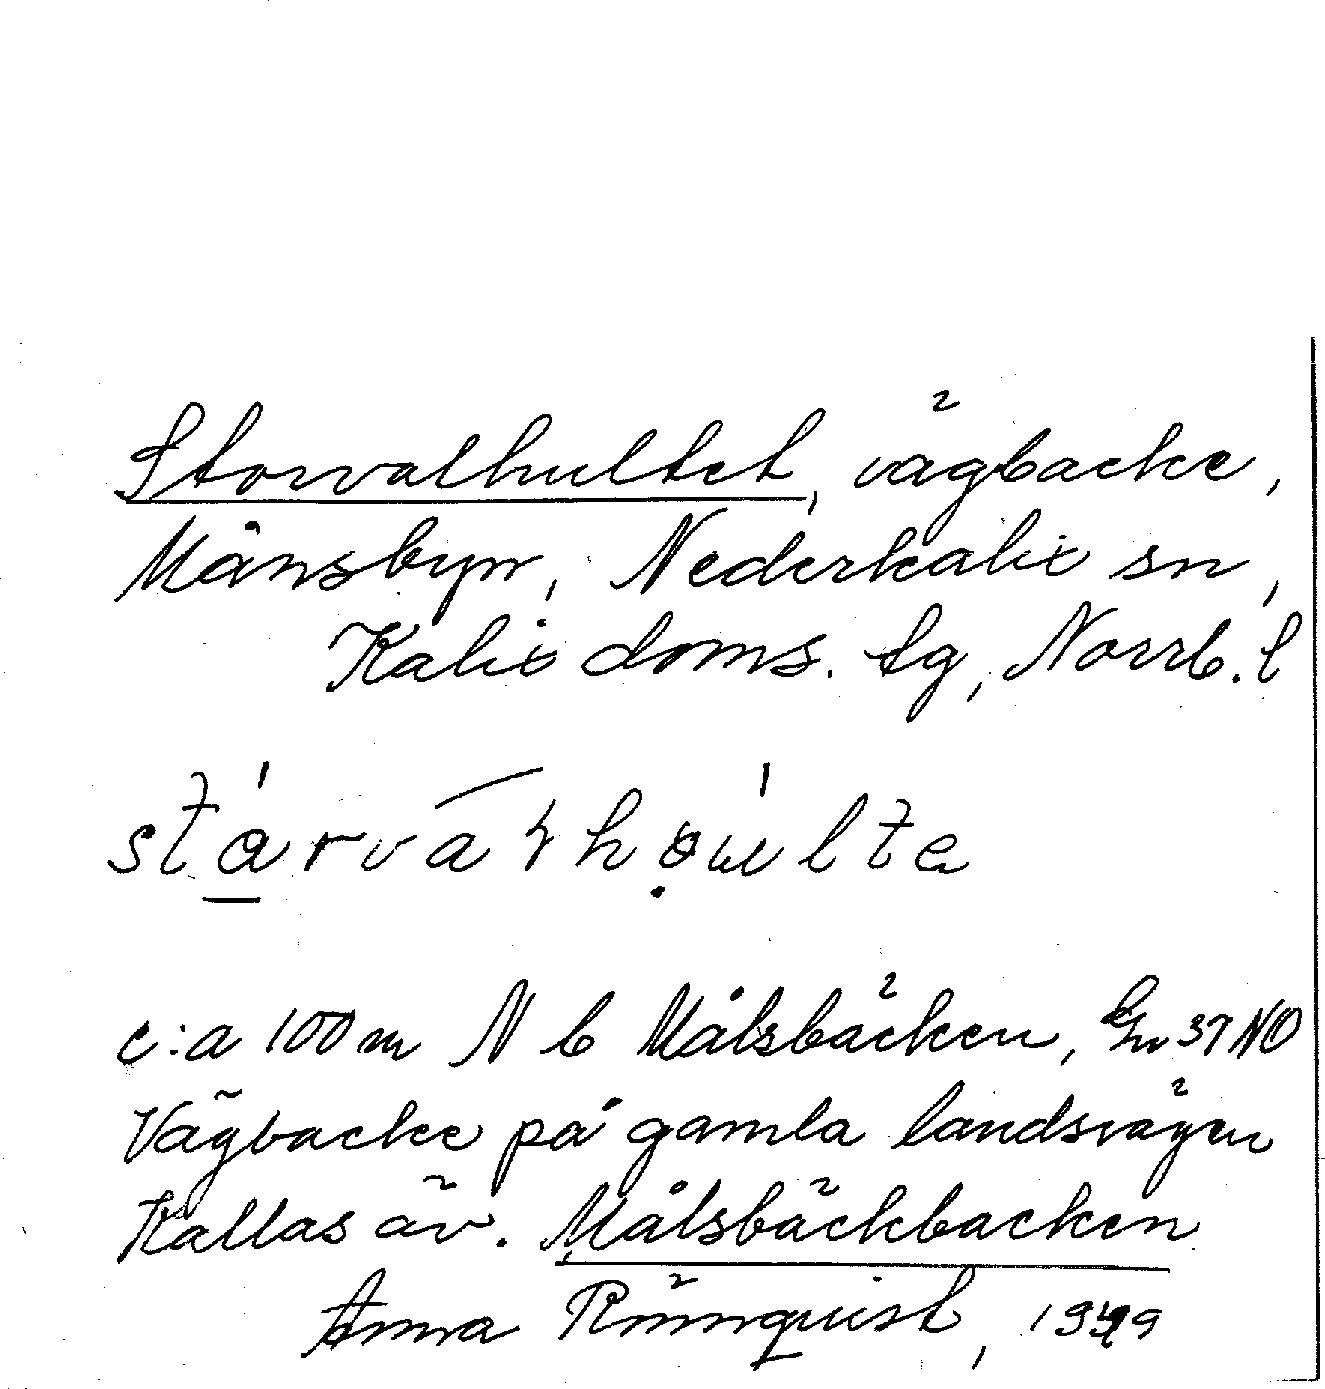 Storvalhultet, vägbacke,
Månsbyn, Nederkalix sn,
Kalix doms. tg, Norrb. l
c:a 100 m N b Målsbäcken, 37 NO
Vägbacke på gamla landsvägen
Kallas äv. Målsbäckbacken
Anna Rönnquist, 1949